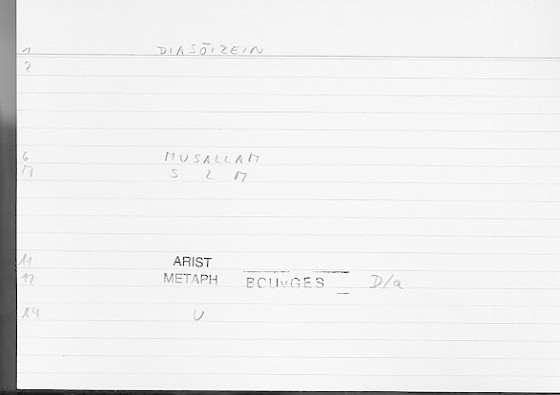 1 DIASŌIZEIN
2
6 MUSALLAM
M S L M
11 ARIST
12 METAPH BOUvGES D/a
14 U